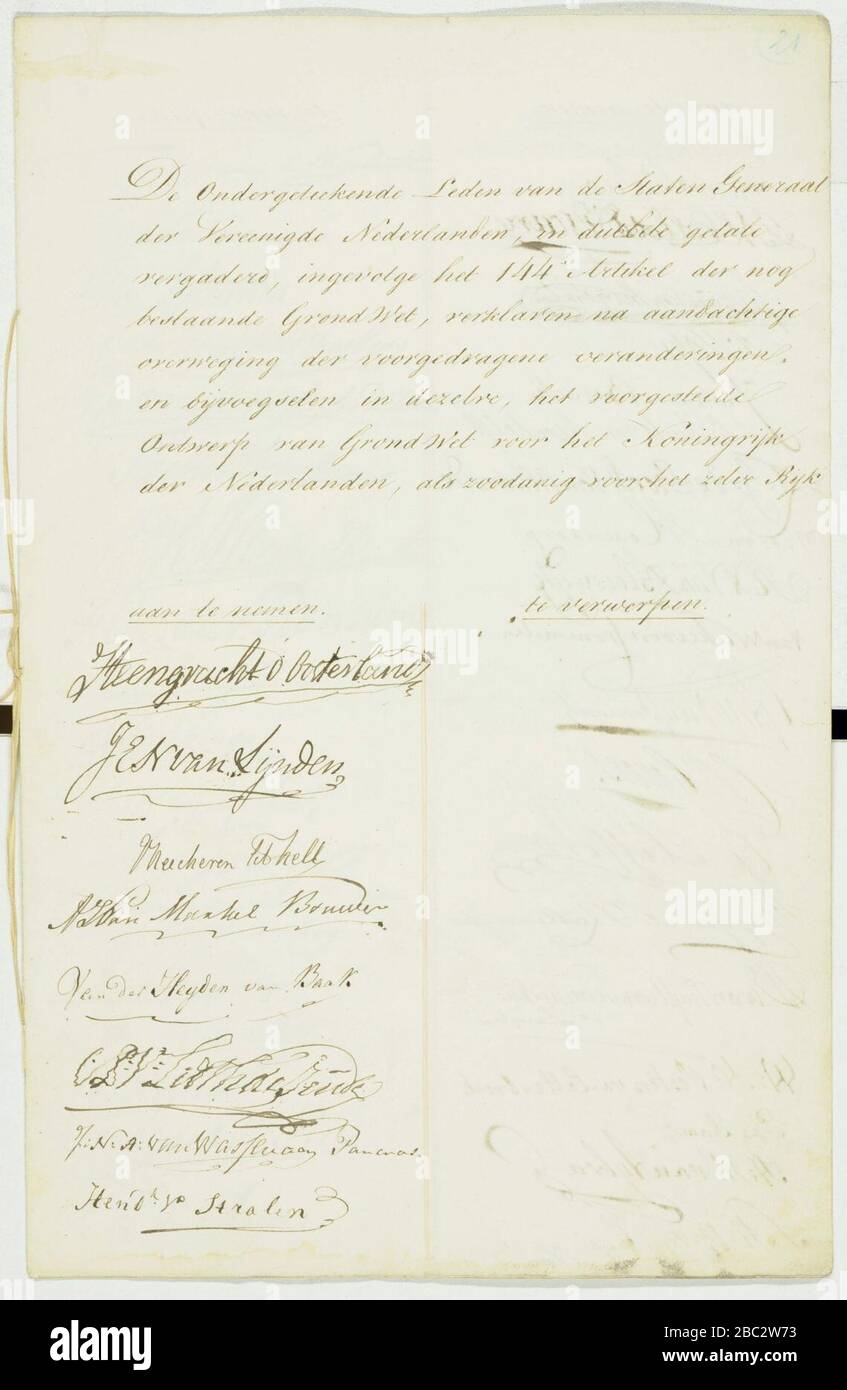 21
De Ondergeteekende Leden van de Staten Generaal
der Vereenigde Nederlanden, in dubbele getale
vergaderd, ingevolge het 144e Artikel der nog
bestaande Grond Wet, verklaren na aandachtige
overweging der voorgedragene veranderingen,
en bijvoegselen in dezelve, het voorgestelde
Ontwerp van Grond Wet voor het Koningrijk
der Nederlanden, als zoodanig voor het zelve Rijk
aan te nemen.
te verwerpen.
Steengracht v Oosterland
J E N van Lynden
A V van Markel Bouwer
Van der Heyden van Baak
van Wassenaer Pancras.
Hendk. vn Stralen
a alamy
Image ID: 2BC2W73
www.alamy.com